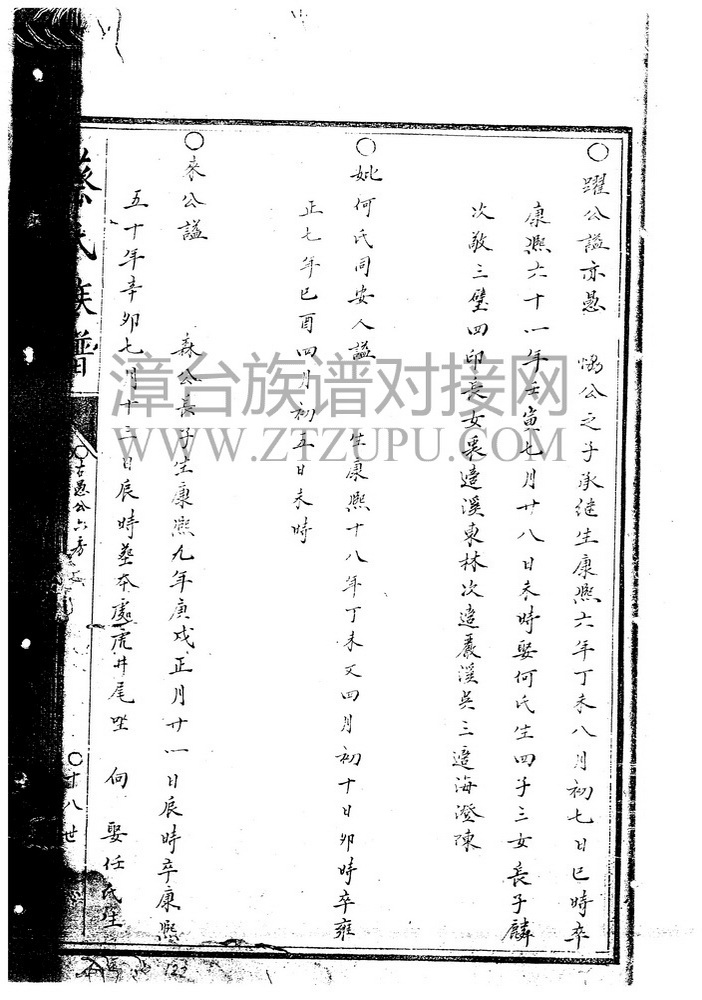 ○躍公謚亦愚 公之子承継生康熙六年丁未八月初七日巳時卒
康熙六十一年壬寅七月廿八日未時娶何氏生四子三女長子麟
次敬三璧四印長女裏邊溪東林次邊嚴溪吳三邊海澄陳
○妣何氏同安人謚 生康熙十八年丁未又四月初十日卯時卒雍
正七年巳酉四月初五日未時
○来公謚 森公長子生康熙九年庚戌正月廿一日辰時卒康熙
五十年辛卯七月十三日辰時塟本處虎井尾坐 向 娶任氏生
氏族譜
○古愚公六房
○廿八世
漳台族谱对接网
WWW.ZTZUPU.COM